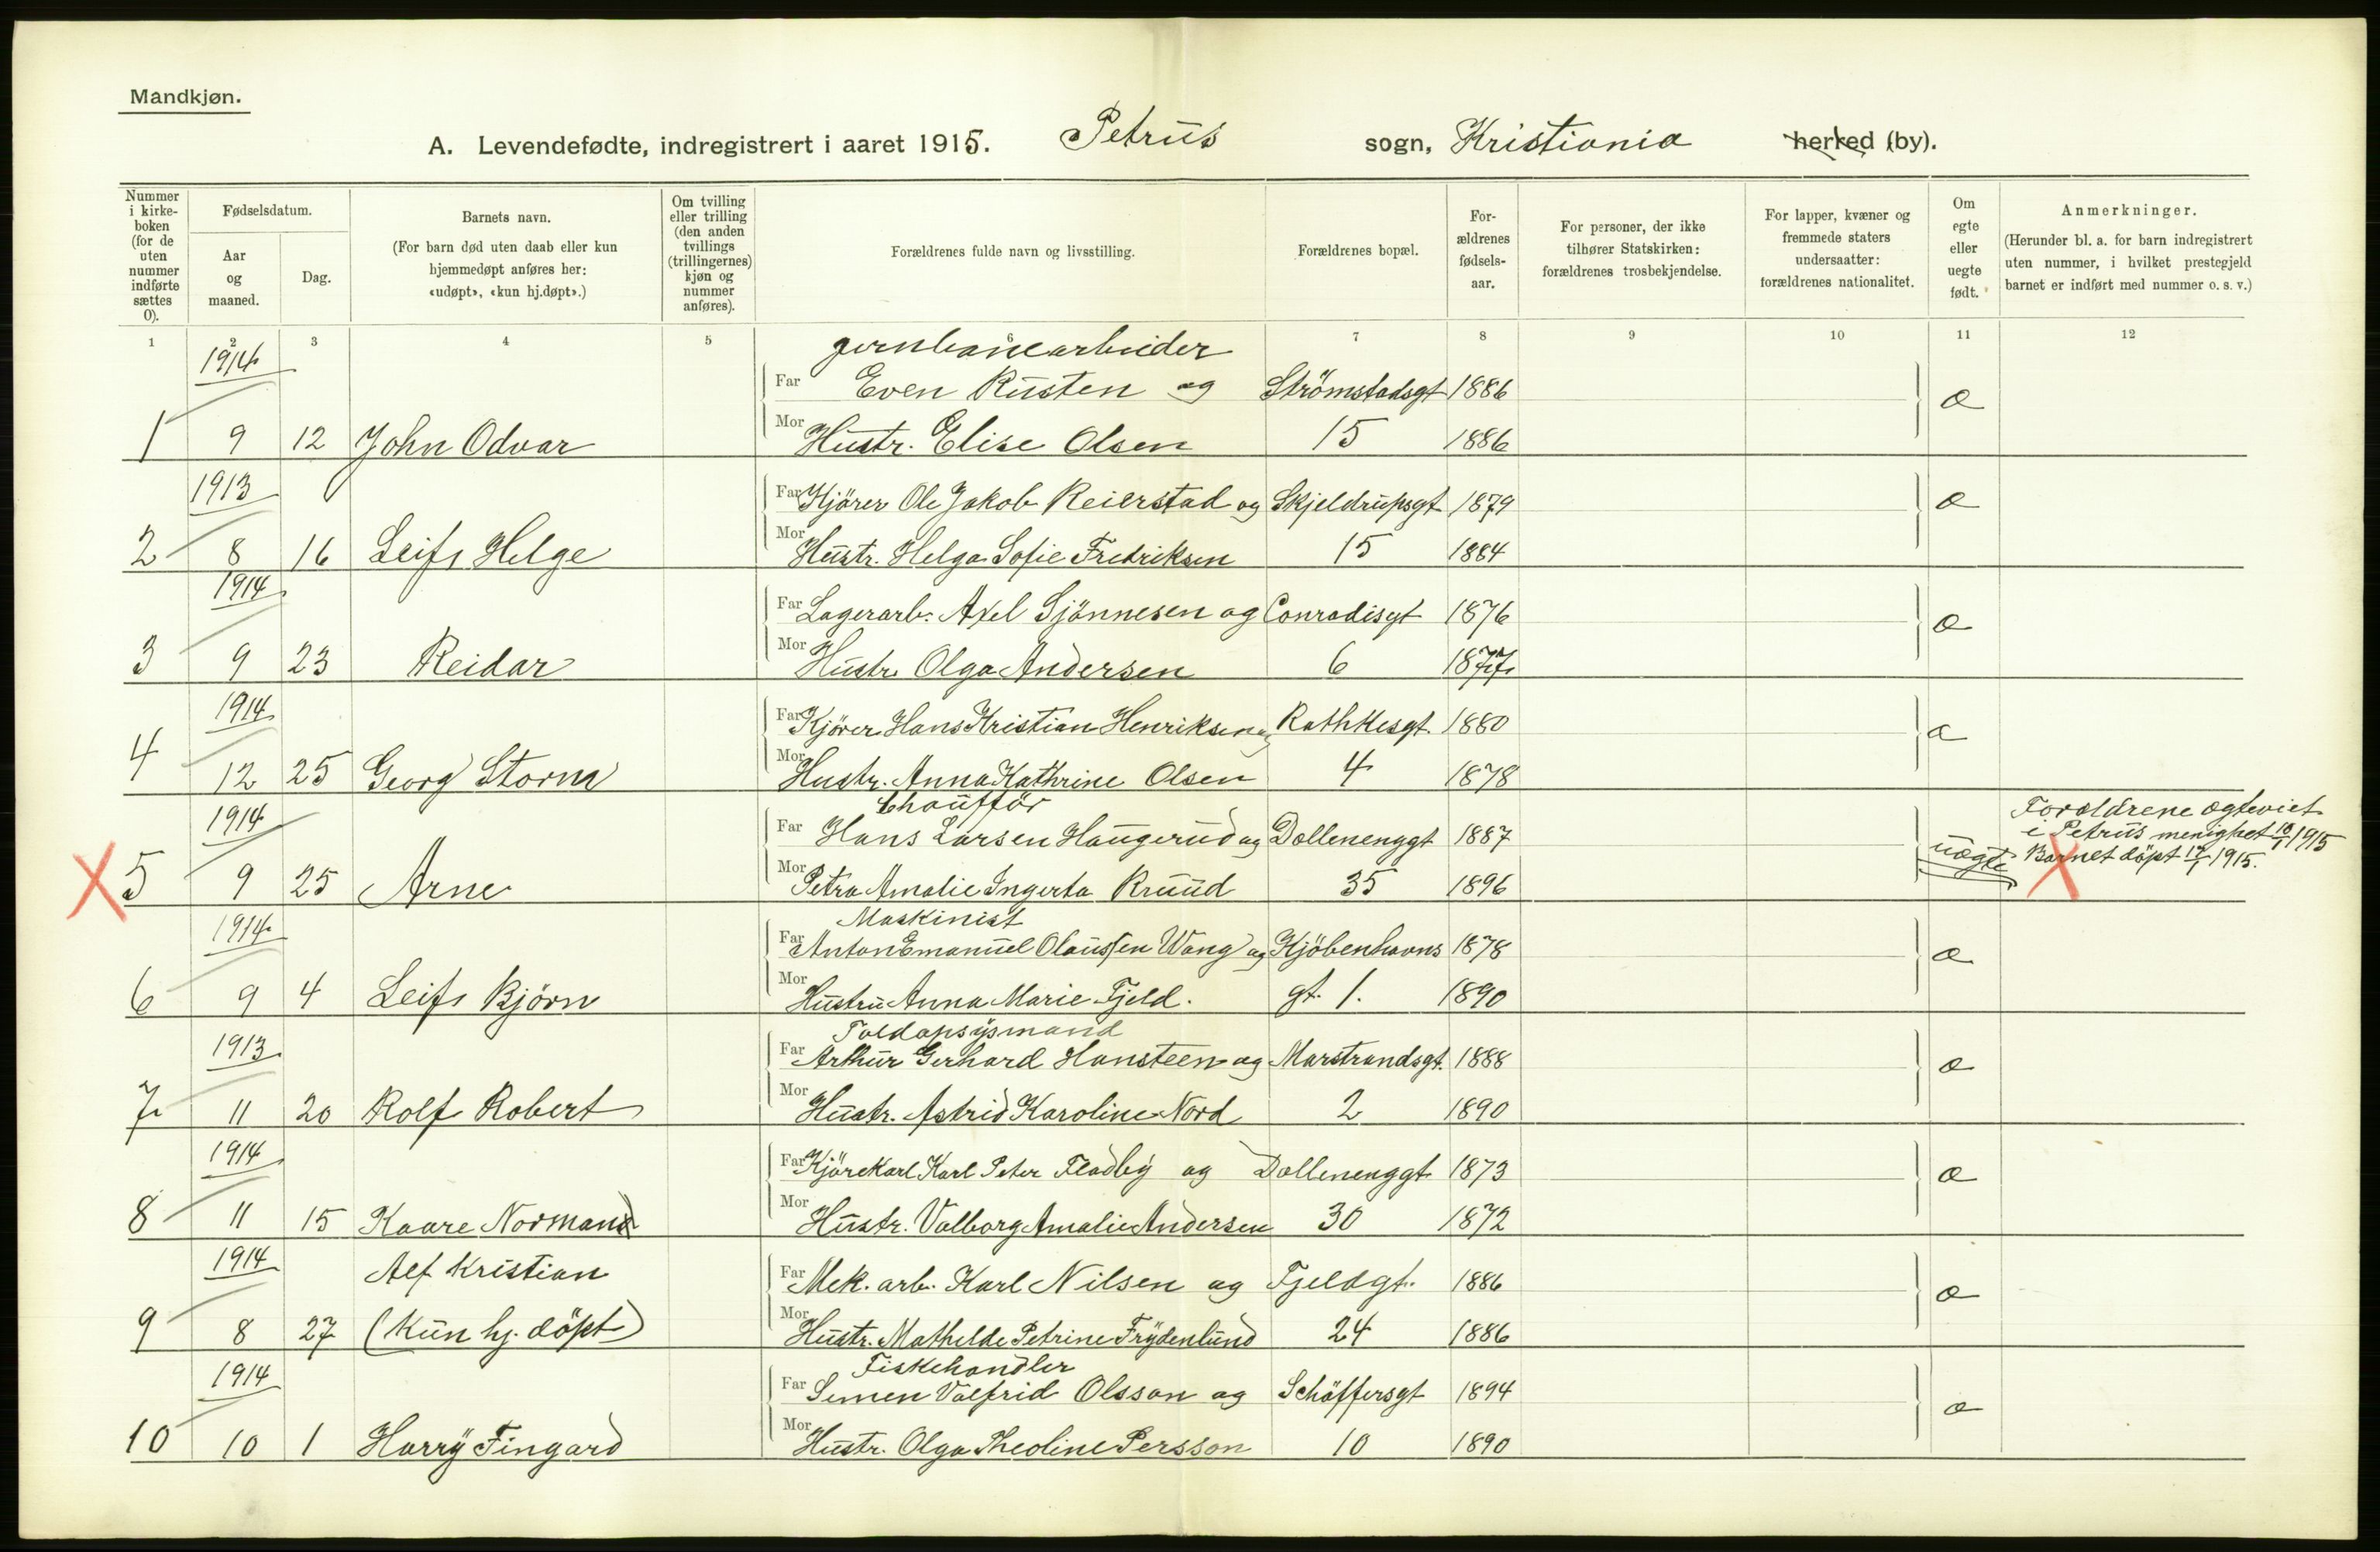 Mandkjøn.
A. Levendefødte, indregistrert i aaret 1915. Petrus sogn, Kristiania herked (by).
Nummer i kirke-boken (for de uten nummer indførte sættes 0).
Fødselsdatum.
Aar og maaned.
Dag.
Barnets navn.
(For barn død uten daab eller kun hjemmedøpt anføres her: «udøpt», «kun hj.døpt».)
Om tvilling eller trilling (den anden tvillings (trillingernes) kjøn og nummer anføres).
Forældrenes fulde navn og livsstilling.
Forældrenes bopæl.
For-ældrenes fødsels-aar.
For personer, der ikke tilhører Statskirken: forældrenes trosbekjendelse.
For lapper, kvæner og fremmede staters undersaatter: forældrenes nationalitet.
Om egte eller uegte født.
Anmerkninger.
(Herunder bl. a. for barn indregistrert uten nummer, i hvilket prestegjeld barnet er indført med nummer o. s. v.)
1 2 3 4 5 6 7 8 9 10 11 12
1914 jernbanearbeider
Far Even Rusten og Strömstadsgt 1886 æ
1 9 12 John Odvar Mor Hustr. Elise Olsen 15 1886
1913 Far Kjörer Ole Jakob Reierstad og Skjeldrupsgt 1879 æ
2 8 16 Leif Helge Mor Hustr. Helga Sofie Fredriksen 15 1884
1914 Far Lagerarb. Axel Sjönnesen og Conradisgt 1876 æ
3 9 23 Reidar Mor Hustr. Olga Andersen 6 1877
1914 Far Kjörer Hans Kristian Henriksen og Rathkesgt. 1880 æ
4 12 25 Georg Storm Mor Hustr. Anna Kathrine Olsen 4 1878
1914 Chafför
Far Hans Larsen Haugerud og Dællenenggt 1887 uægte
Foræeldrene ægteviet
i Petrus menighet 10/1 1915
Barnet döpt 10/1 1915.
X 5 9 25 Arne Mor Petra Amalie Ingerta Kruud 35 1896 X
1914 Maskinist
Far Anton Emanuel Olaussen Wang og Kjöbenhavns 1878 æ
6 9 4 Leif Björn Mor Hustru Anna Marie Fjeld. gt. 1. 1890
1913 Toldopsysmand
Far Arthur Gerhard Hansteen og Marstrandsgt. 1888 æ
7 11 20 Rolf Robert Mor Hustr. Astrid Karoline Nord 2 1890
1914 Far Kjörekarl Karl Peter Fladby og Dællenenggt 1873 æ
8 11 15 Kaare Norman Mor Hustr. Valborg Amalie Andersen 30 1872
1914 Alf Kristian Far Mek. arb. Karl Nilsen og Fjeldgt. 1886 æ
9 8 27 (Kun hj. döpt) Mor Hustr. Mathilde Petrine Frydenlund 24 1886
1914 Fiskehandler
Far Simen Valfrid Olsson og Schöffersgt 1894 æ
10 10 1 Harry Fingard Mor Hustr. Olga Theoline Persson 10 1890